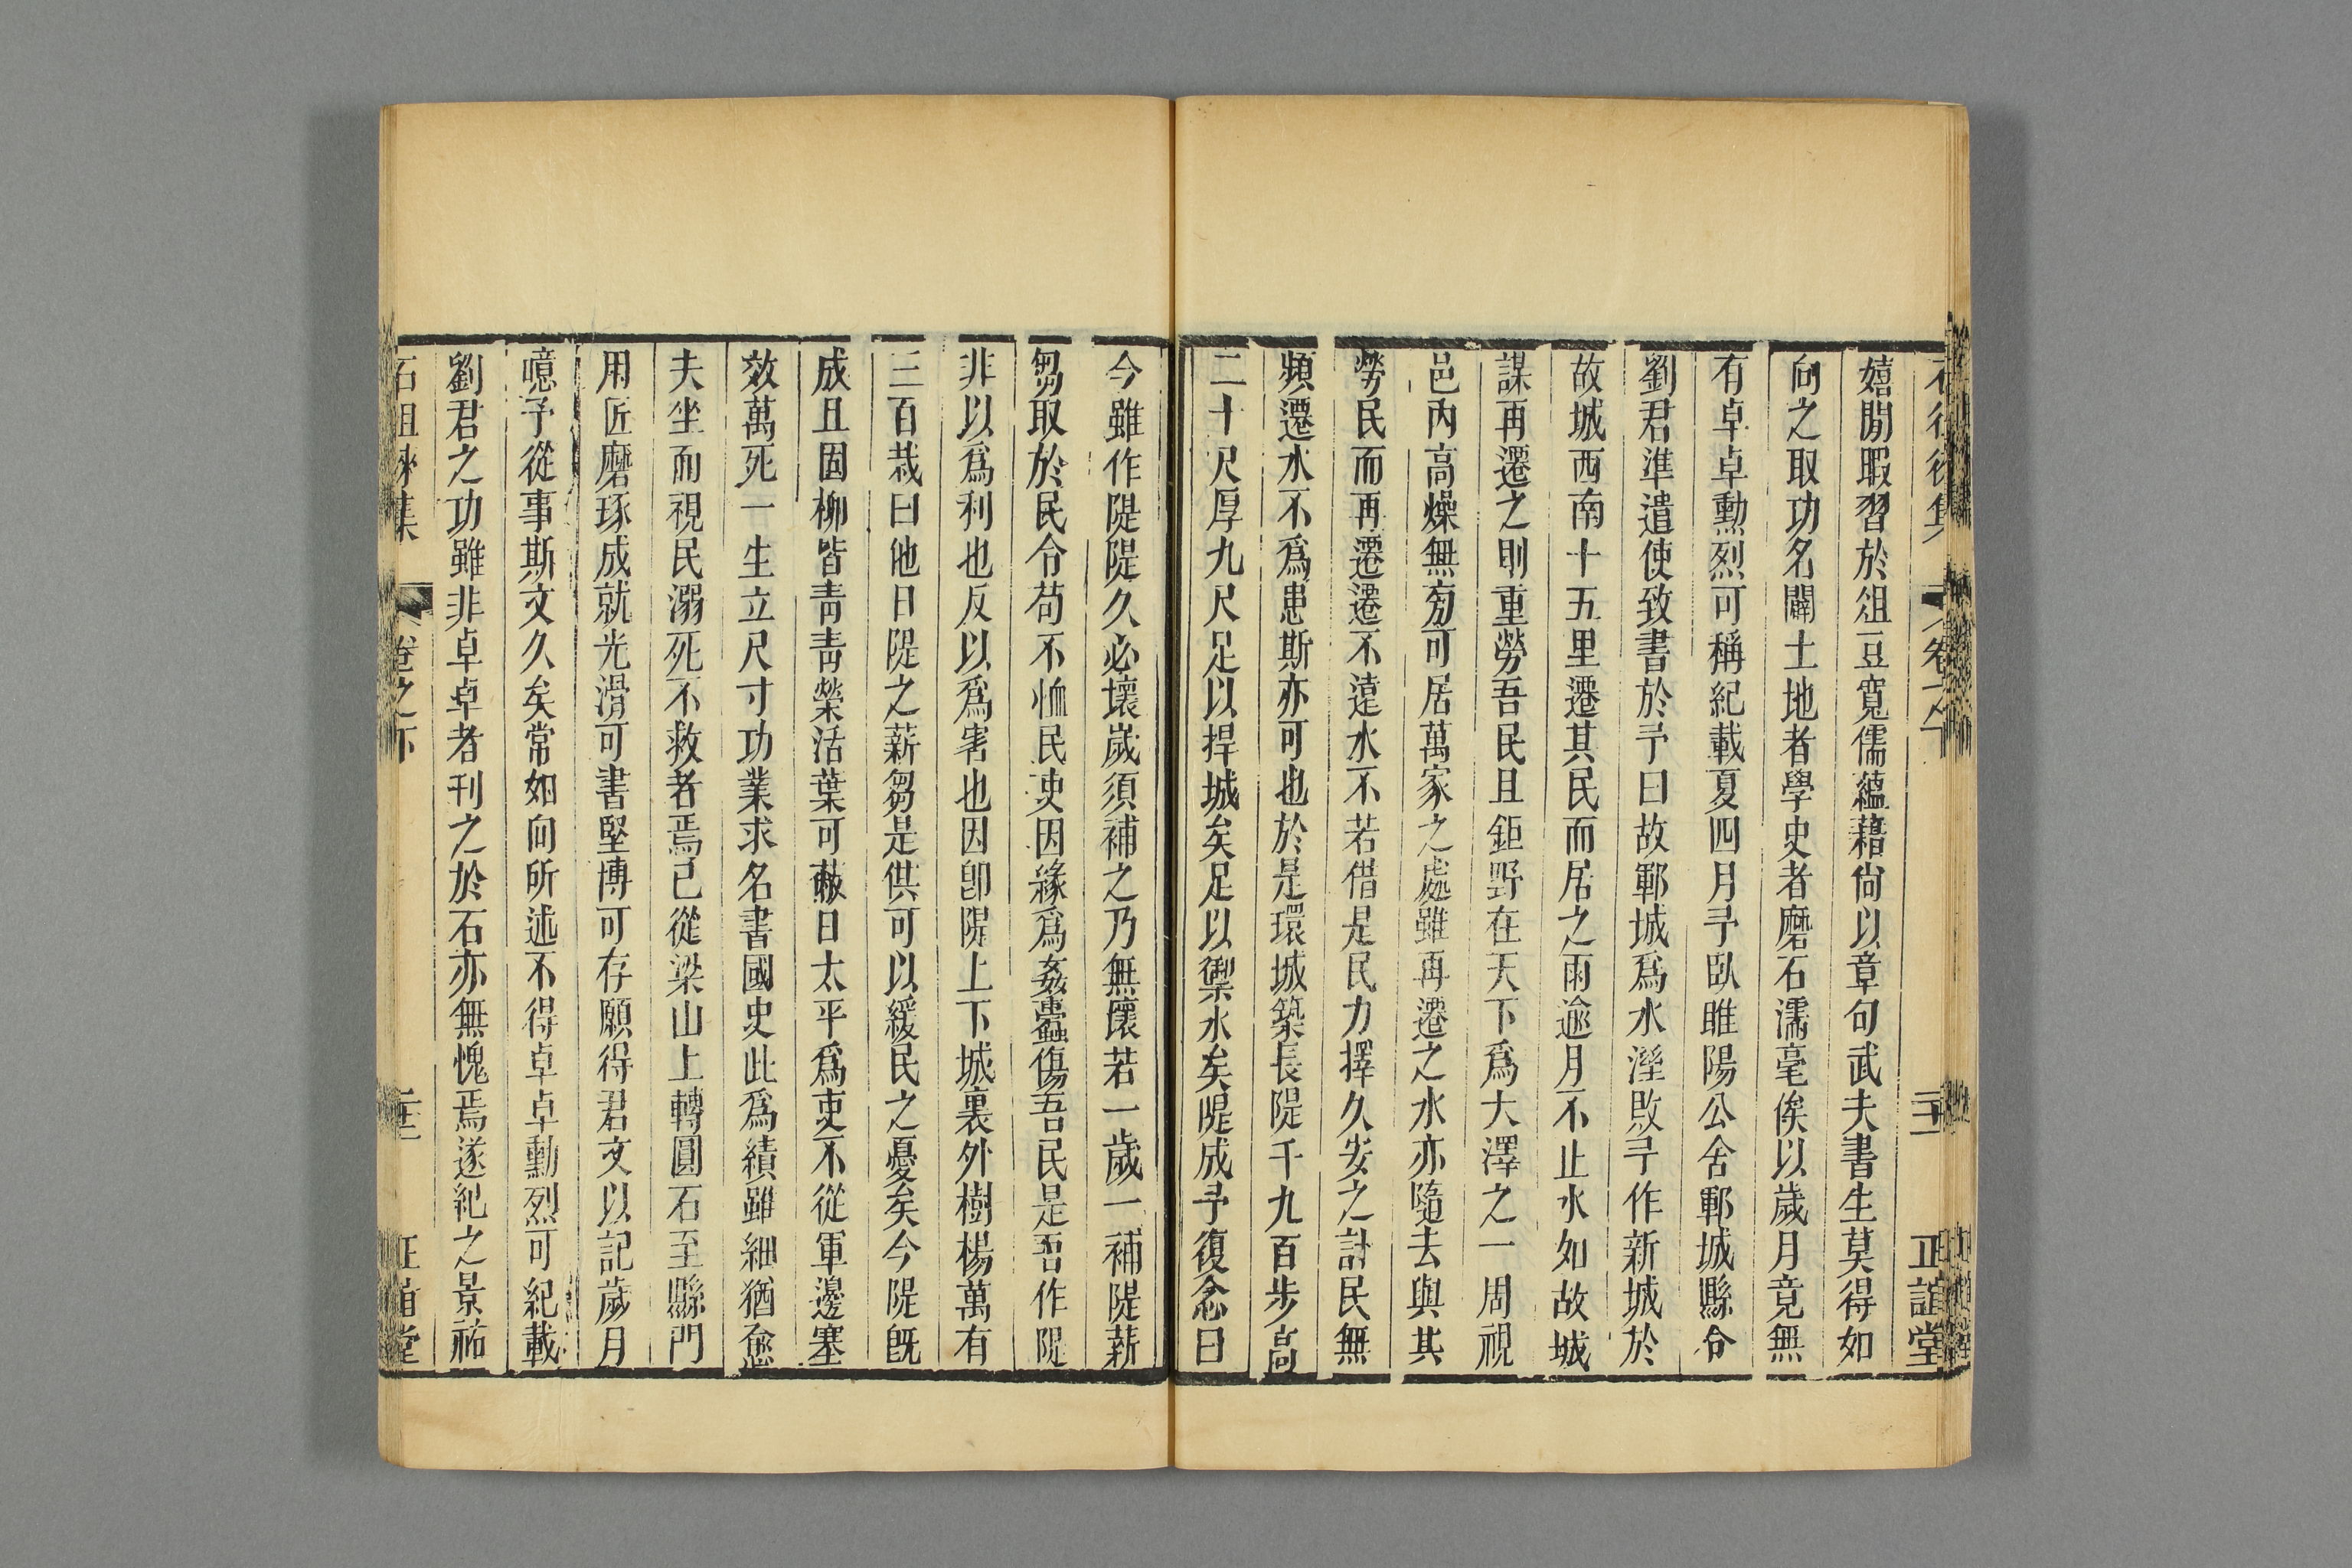 嬉閒暇習於俎豆寬儒蘊藉尙以章句武夫書生莫得如
向之取功名闢土地者學史者磨石濡毫俟以歲月竟無
有卓卓勳烈可稱紀載夏四月予臥睢陽公舍鄆城縣令
劉君準遣使致書於予曰故鄆城爲水溼敗予作新城於
故城西南十五里遷其民而居之雨逾月不止水如故城
謀再遷之則重勞吾民且鉅野在天下爲大澤之一周視
邑內高燥無㫄可居萬家之處雖再遷之水亦隨去與其
勞民而再遷遷不遠水不若借是民力擇久安之計民無
頻遷水不爲患斯亦可也於是環城築長隄千九百步高
二十尺厚九尺足以捍城矣足以禦水矣隄成予復念曰
今雖作隄隄久必壞歲須補之乃無壞若一歲一補隄薪
芻取於民令苟不恤民吏因緣爲姦蠹傷吾民是吾作隄
非以爲利也反以爲害也因卽隄上下城裏外樹楊萬有
三百栽曰他日隄之薪芻是供可以緩民之憂矣今隄旣
成且固柳皆靑靑榮活葉可蔽日太平爲吏不從軍邊塞
效萬死一生立尺寸功業求名書國史此爲績雖細猶愈
夫坐而視民溺死不救者焉已從梁山上轉圓石至縣門
用匠磨琢成就光滑可書堅博可存願得君文以記歲月
噫予從事斯文久矣常如向所述不得卓卓勳烈可紀載
劉君之功雖非卓卓者刊之於石亦無愧焉遂紀之景祐
石徂徠集 卷之下 正誼堂